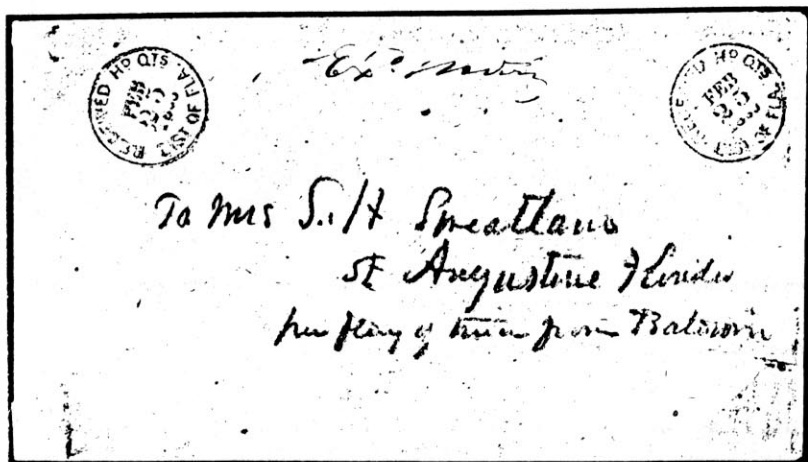 RECEIVED HD QTS. DIST OF FLA.
FEB
25
Exd
RECEIVED HD QTS. DIST OF FLA.
FEB
25
To Mrs S. H
St Augustine Florida
per flag of truce from Baldwin